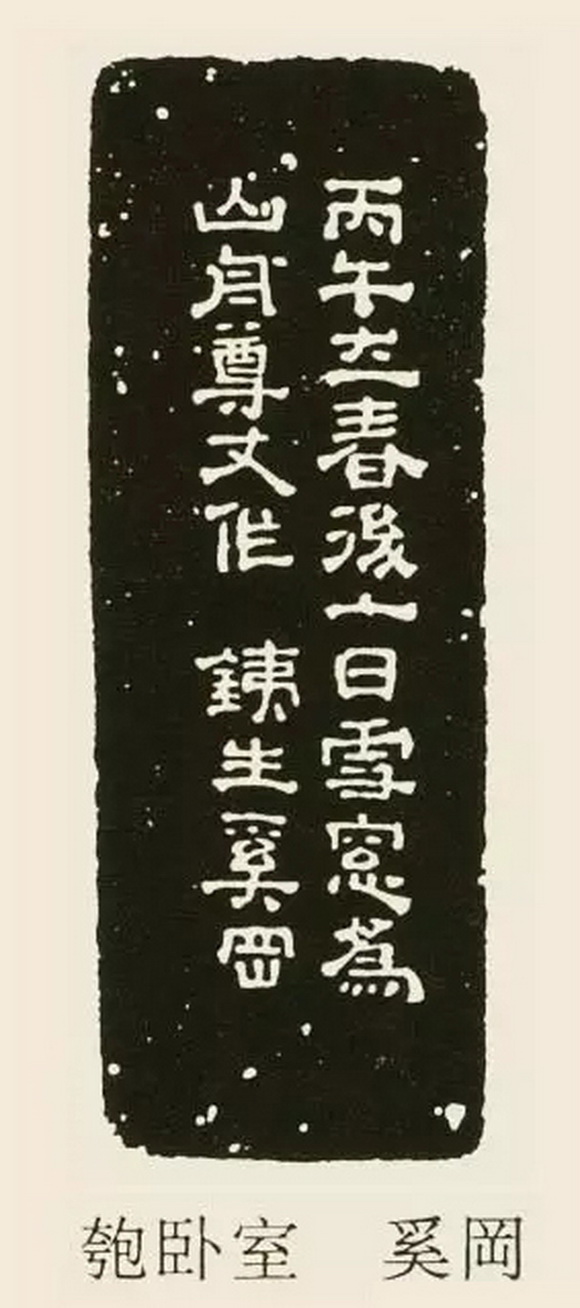 丙午立春後十日雪窓為
山舟尊丈作 銕生奚岡
匏卧室 奚岡